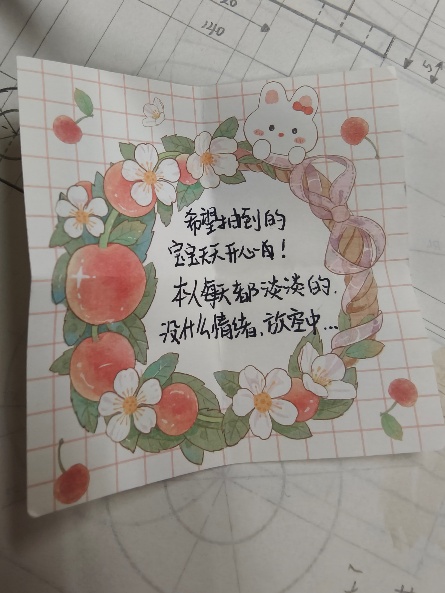 140
希望拍到的
宝宝天天开心自!
本人每天都淡淡的.
没什么情绪.放空中...